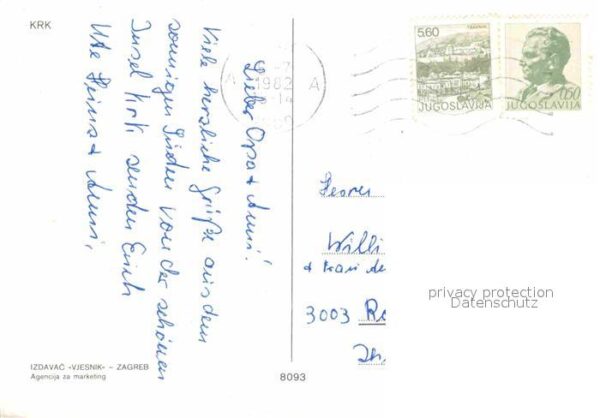 KRK
Lieber Opa + Anni!
Viele herzliche Grüße aus dem
sonnigen Süden von der schönen
Insel Krk senden Euch
Ute Heinz + Anni,
IZDAVAČ «VJESNIK» – ZAGREB
Agencija za marketing
8093
A
1982
A
14
5.60
TRAVNIK
JUGOSLAVIJA
0.60
JUGOSLAVIJA
Willi
3003
privacy protection
Datenschutz